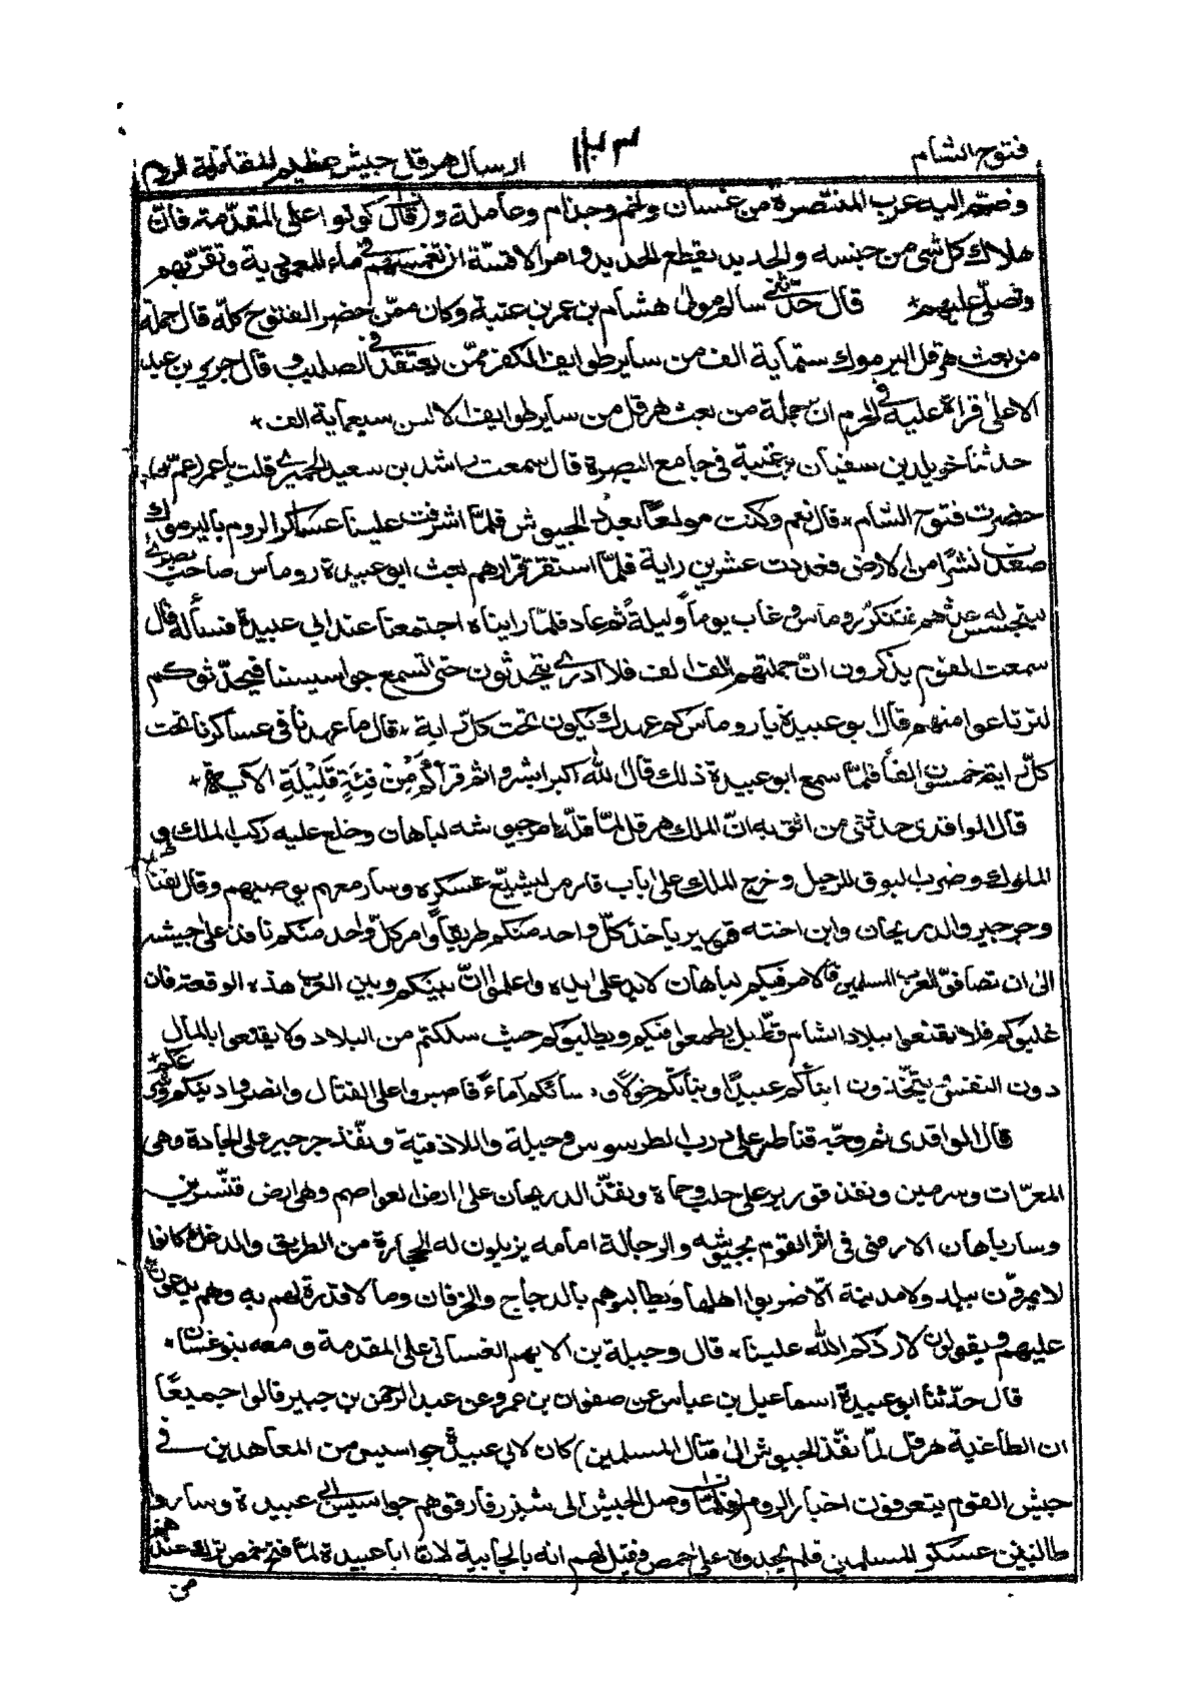 فتوح الشام ١٤٣ ارسال هرقل جيش عظيم لمقاتلة الروم
وضم اليه عرب المتنصرة من غسان ولخم وجذام وعاملة و قال كونوا على المقدمة فانّ
هلاك كل شئ من جنسه والحديد يقطع الحديد وامر الاقسّة ان تغمسهم في ماء المعمودية وتقربهم
وتصلّي عليهم * قال حدّثني سالم مولى هشام بن عمر بن عتبة وكان ممن حضر الفتوح كلّه قال جملة
من بعث هرقل اليرموك ستماية الف من ساير طوايف الكفر ممّن يعتقد في الصليب و قال جرير بن عبد
الاعلى قراءة عليه في الحرم ان جملة من بعث هرقل من ساير طوايف الالسن سبعماية الف *
حدثنا خويلد بن سفيان بن عتبة في جامع البصرة قال سمعت راشد بن سعيد الحميري قلت يا عم
حضرت فتوح الشام * قال نعم وكنت مولعًا بعدد الجيوش فلمّا اشرفت علينا عساكر الروم باليرموك
صعدت نشزًا من الارض فعددت عشرين راية فلمّا استقرّ قرارهم بعث ابو عبيدة روماس صاحب بصرى
يتجسس له عنهم فتنكر روماس و غاب يوماً وليلةً ثم عاد فلمّا رايناه اجتمعنا عند ابي عبيدة فسأله قال
سمعت القوم يذكرون انّ جملتهم الف الف فلا ادري يتحدثون حتى تسمع جواسيسنا فيحدّثوكم
لترتاعوا منهم قال ابو عبيدة يا روماس كم عهدك يكون تحت كلّ راية * قال ما عهدنا في عساكرنا تحت
كلّ راية خمسون الفاً فلمّا سمع ابو عبيدة ذلك قال الله اكبر ابشروا ثم قرأ كَم مِّنْ فِئَةٍ قَلِيْلَةِ الآية *
قال الواقدى حدثنى من اثق به انّ الملك هرقل لمّا قلّد امر جيوشه لباهان وخلع عليه ركب الملك و
الملوك وضرب البوق للرحيل وخرج الملك على باب فارس ليشيّع عسكره وسار معهم يوصيهم وقال لقناطر
وجرجير والدريحان وابن اخته قورير ياخذ كلّ واحد منكم طريقاً وامر كلّ واحد منكم نافذ على جيشه
الى ان تصافّوا العرب المسلمين فالامر فيكم لباهان لا يد على يده واعلموا انّ بينكم وبين العرب هذه الوقعة فان
غلبوكم فلا يقنعوا ببلاد الشام قطّ بل يطمعوا فيكم ويطلبوكم حيث سلكتم من البلاد ولا يقنعوا بالمال
دون النفس يتخذون ابنأكم عبيدًا وبناتكم خولًا و نسائكم اماءً فاصبروا على القتال وانصروا دينكم وشرعكم *
قال الواقدى ثم وجّه قناطر على درب طرسوس وجبلة واللاذقية ونفّذ جرجير على الجادة وهى
المعرّات وسرمين ونفذ قورير على حلب وحماة ونفّذ الدريحان على ارض العواصم وهى ارض قنّسرين
وسار باهان الارمنى فى اثر القوم بجيوشه والرجالة امامه يزيلون له الحجارة من الطريق والدغل كانوا
لا يمرّون ببلد ولا مدينة الّا ضربوا اهلها ويطالبوهم بالدجاج والخرفان وما لا قدرة لهم به وهم يدعون
عليهم ويقولون لا ردّكم الله علينا * قال وجبلة بن الايهم الغسانى على المقدمة و معه بنو غسّان *
قال حدّثنا ابو عبيدة اسماعيل بن عياس عن صفوان بن عمرو عن عبد الرحمن بن جبير قالوا جميعًا
ان الطاغية هرقل لمّا نفّذ الجيوش الى قتال المسلمين كان لابي عبيدة جواسيس من المعاهدين في
جيش القوم يتعرفون اخبار الروم فلمّا وصل الجيش الى شيزر فارقوهم جواسيس ابى عبيدة وساروا
طالبين عسكر المسلمين فلم يجدوه على حمص فقيل لهم انه بالجابية لان ابا عبيدة لمّا فتح حمص ترك عندهم
من